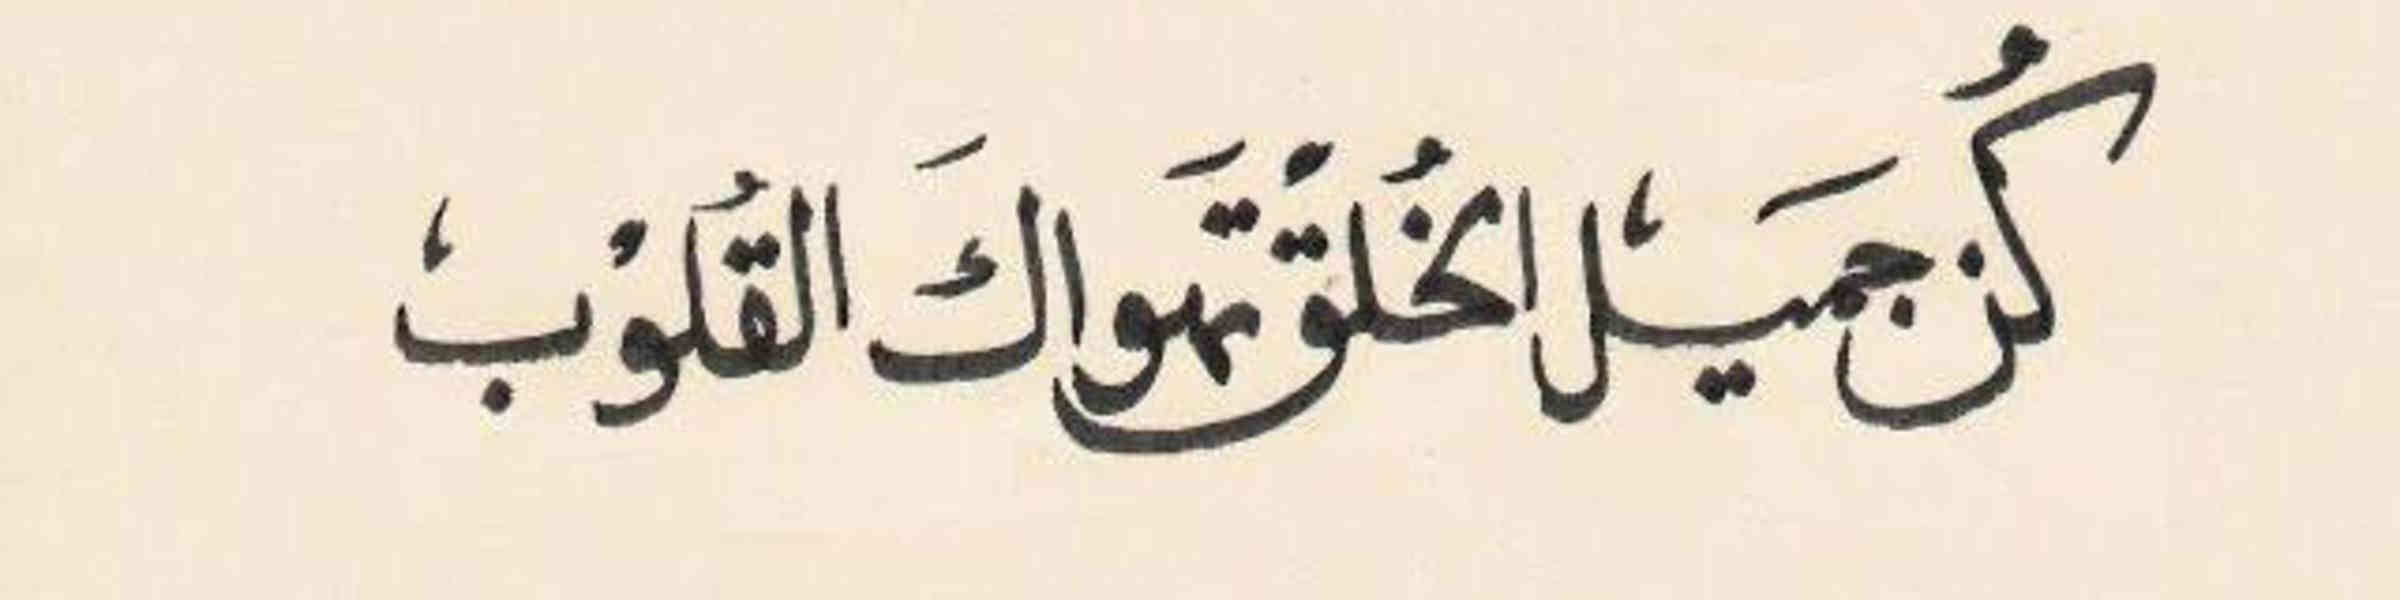 كُن جَميل الخُلقْ تَهواكَ القُلوْب